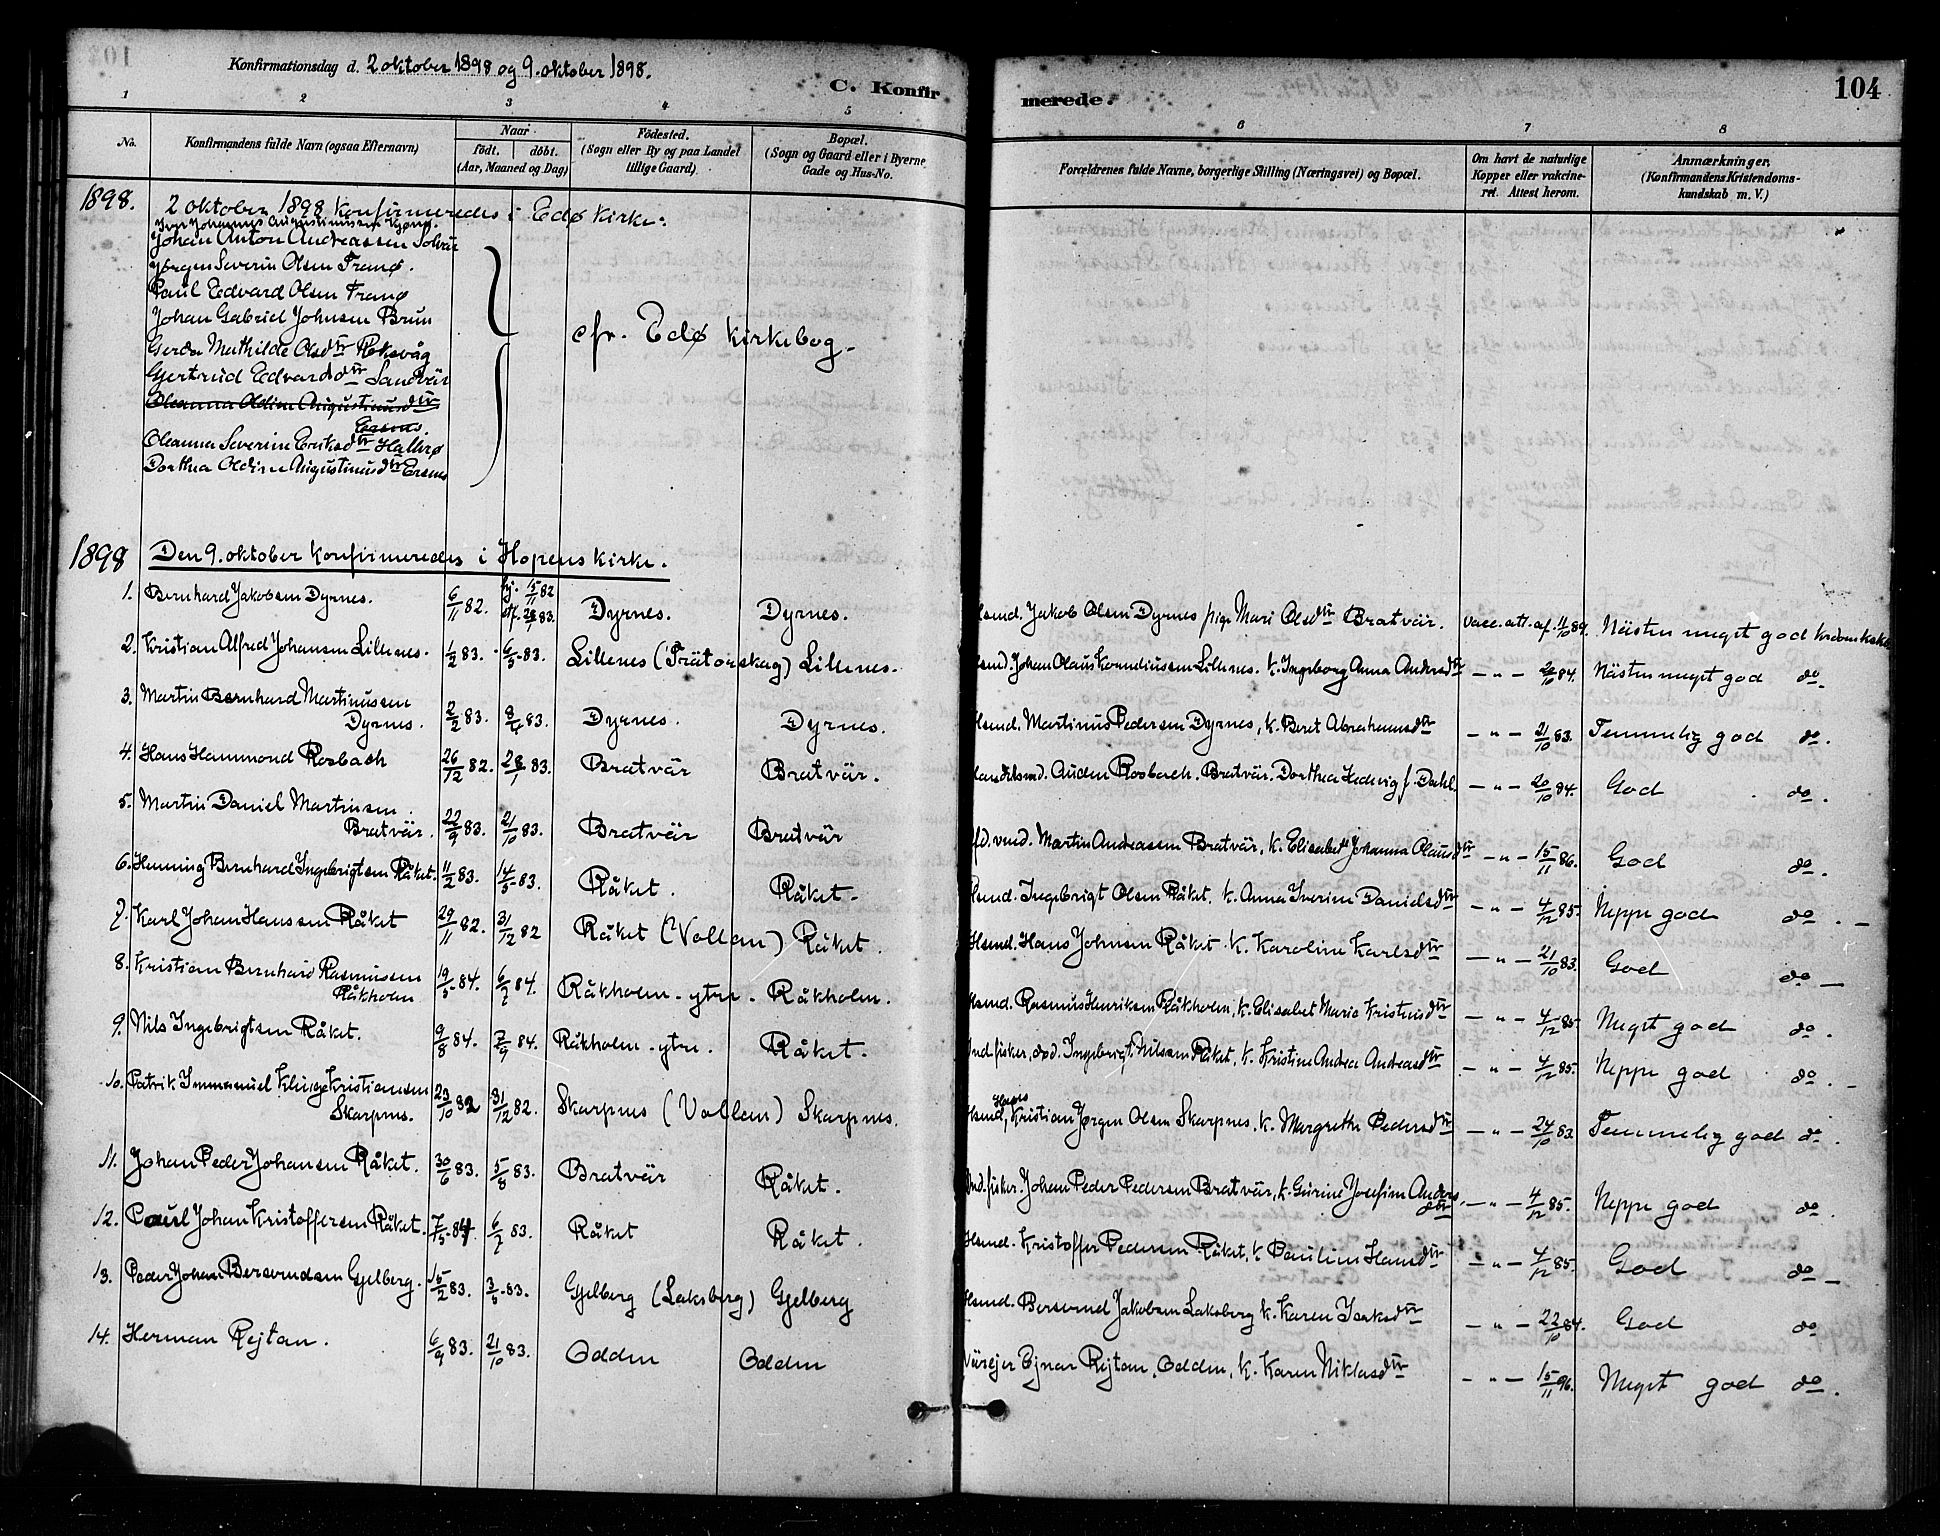 Konfirmationsdag d. 2 oktober 1898 og 9. oktober 1898.
C. Konfirmerede.
104
1 2 3 4 5 6 7 8
No.
Konfirmandens fulde Navn (ogsaa Efternavn)
Naar
födt. döbt.
(Aar, Maaned og Dag)
Födested.
(Sogn eller By og paa Landet
tillige Gaard).
Bopæl.
(Sogn og Gaard eller i Byerne
Gade og Hus-No.
Forældrenes fulde Navne, borgerlige Stilling (Næringsvei) og Bopæl.
Om havt de naturlige
Kopper eller vakcine-
ret. Attest herom.
Anmærkninger,
(Konfirmandens Kristendoms-
kundskab m. V.)
1898. 2 oktober 1898 konfirmeredes i Edø kirke:
Johannes Augustinussen
Johan Anton Andreassen Solvær
Jørgen Severin Olsen Tranø.
Paul Edvard Olsen Tranø
Johan Gabriel Johnsen Brun
Gerda Mathilde Olsdtr Roksvåg
Gjertrud Edvardsdtr Sandvär
Oleanna Oldine Augustinusdtr
Ersnes.
Oleanna Severine Eriksdtr Halsø
Dorthea Oldine Augustinusdtr Ersnes
cfr. Edø Kirkebog.
1898 Den 9. oktober konfirmeredes i Hopens kirke.
1. Bernhard Jakobsen Dyrnes. 6/11 82. hj. 15/11 82 stf. 28/1 83. Dyrnes. Dyrnes. Hsmd. Jakob Olsen Dyrnes pige Mari Olsdtr Bratvär. Vacc. att. af 11/10 84. Nästen meget god krdomskdsk.
2. Kristian Alfred Johansen Lillenes. 1/2 83. 6/5 83. Lillenes (Trätorskag) Lillenes. Hsmd. Johan Olaus Korneliussen Lillenes. k. Ingeborg Anna Andersdtr — " — 20/10 84. Nästen meget god do.
3. Martin Bernhard Martinussen
Dyrnes. 2/2 83. 8/4 83. Dyrnes. Dyrnes. Hsmd. Martinus Pedersen Dyrnes, k. Beret Abrahamsdtr — " — 21/10 83. Temmelig god do.
4. Hans Hammond Rosbach 26/12 82. 28/1 83. Bratvär Bratvär. Handelsmd. Auden Rosbach. Bratvär. Dorthea Hedevig f. Dahl. — " — 20/10 84. God do.
5. Martin Daniel Martinsen
Bratvär. 22/9 83. 21/10 83. Bratvär Bratvär fd. vmd. Martin Andreassen Bratvär, k. Elisabet Johanna Olausdtr — " — 15/11 86. God do.
6. Henning Bernhard Ingebrigtsen Råket. 11/2 83. 14/5 83. Råket. Råket. Hsmd. Ingebrigt Olsen Råket. k. Anna Iverine Danielsdtr — " — 4/12 85. Neppe god do. —
7. Karl Johan Hanssen Råket 29/11 82. 31/12 82 Råket (Vollan) Råket. Hsmd. Hans Johnsen Råket. k. Karoline Karlsdtr — " — 21/10 83. God do —
8. Kristian Bernhard Rasmussen
Råkholm 19/5 84. 6/7 84. Råkholm - ytre. Råkholm. Hsmd. Rasmus Henriksen Råkholm, k. Elisabet Marie Kristensdtr — " — 4/12 85. Meget god do.
9. Nils Ingebrigtsen Råket. 9/8 84. 7/9 84. Råkholm - ytre. Råket. Ind. fisker, död. Ingebrigt Nilssen Råket, k. Kristine Andrea Andreasdtr — " — 4/12 85. Neppe god do. —
10. Patrik Immanuel Klinge Kristiansen
Skarpnes. 23/10 82 31/12 82. Skarpnes (Vollan) Skarpnes. Hsmd, Hans Kristian Jørgen Olsen Skarpnes. k. Margrethe Pedersdtr — " — 24/10 83. Temmelig god do.
11. Johan Peder Johansen Råket. 30/6 83. 5/8 83. Bratvär Råket. Ind. fisker. Johan Peder Pedersen Bratvär, k. Gurine Josefine Andersdtr — " — 4/12 85. Neppe god do.
12. Paul Johan Kristoffersen Råket. 7/5 84 6/7 83. Råket Råket. Hsmd. Kristoffer Pedersen Råket, k. Pauline Hansdtr — " — 4/12 85. God do —
13. Peder Johan Bersvendsen Gjelberg. 15/2 83. 3/5 83. Gjelberg (Laksberg) Gjelberg Hsmd. Bersvend Jakobsen Laksberg k. Karen Isaksdtr — " — 22/10 84. God do
14. Herman Rejtan. 6/9 83. 21/10 83. Odden Odden Värejer Ejnar Rejtan, Odden, k. Karen Niklasdtr — " — 15/11 96. Meget god do.